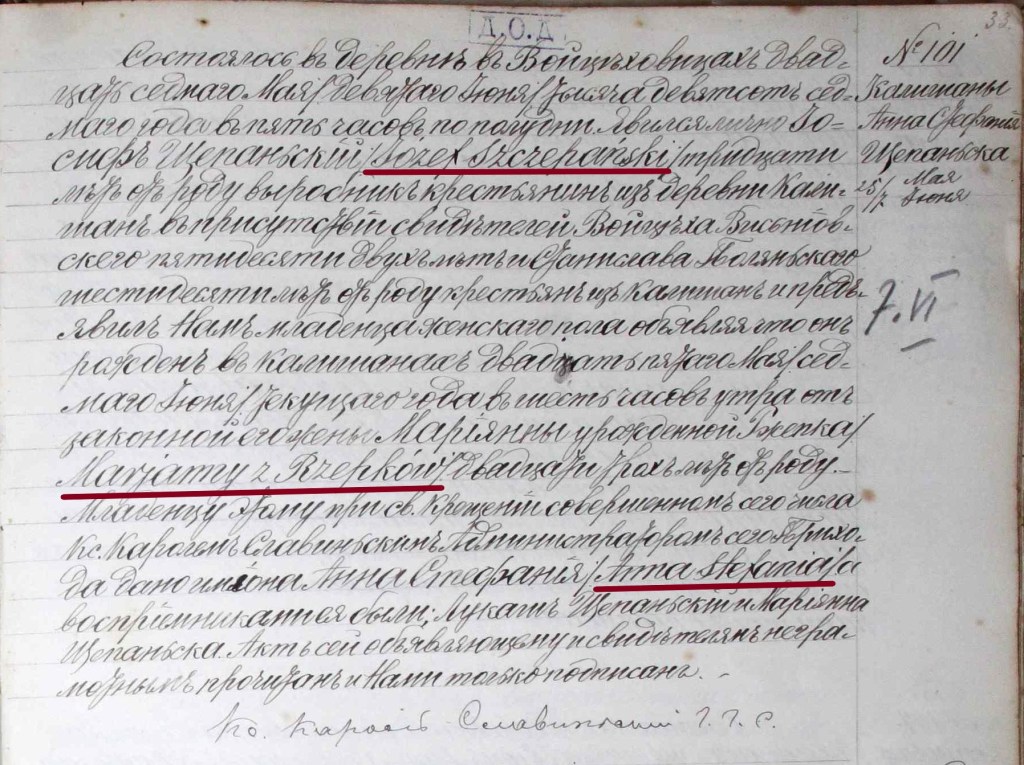 33.
Д.О.Д
Состоялось въ деревнѣ въ Войцѣховицахъ двад-
цать седмаго Мая/девятаго Іюня/тысяча девятсотъ сед-
маго года въ пять часовъ по полудни. Явился лично Іо-
сифъ Щепаньскій /Józef Szczepański/ тридцати
лѣтъ отъ роду выробникъ крестьянинъ изъ деревни Кали-
шанъ въ присутствіи свидѣтелей Войцѣха
скего пятидесяти двухъ лѣтъ и Станислава Поляньскаго
шестидесяти лѣтъ отъ роду крестьянъ изъ Калишанъ и предъ-
явилъ Намъ младенца женскаго пола объявляя что онъ
рожденъ въ Калишанахъ двадцать пятаго Мая/сед-
маго Іюня/текущаго года въ шесть часовъ утра отъ
законной его жены Маріянны урожденной Жепка/
Marjanny z Rzepków/двадцати трохъ лѣтъ отъ роду.-
Младенцу этому при св. Крещеніи совершенномъ сего числа
Кс. Каролемъ Славиньскимъ Администраторомъ сего Прихо-
да дано имѣона Анна Стефанія/Anna Stefania/а
воспріемниками ея были; Лукашъ Щепаньскій и Маріянна
Щепаньска. Актъ сей объявляющему и свидѣтелямъ негра-
мотнымъ прочитанъ и Нами только подписанъ. -
Кс. Кароль Славиньскій
№ 101
Калишаны
Анна Стефанія
Щепаньска
25/7 Мая
Іюня
7.VI